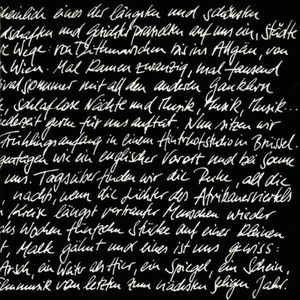 heinlich eines der längsten und schönsten
schaften und Gesichter prasselten auf uns ein, Städte
Wege: von Dithmarschen bis ins Allgäu, von
Wien. Mal kamen zwanzig, mal tausend
sommer mit all den andern Gauklern
schlaflose Nächte und Musik, Musik, Musik...
jederzeit gern für uns auftat. Nun sitzen wir
Frühlingsanfang in einem Hinterhofstudio in Brüssel.
wie ein englischer Vorort und bei Sonne
uns. Tagsüber finden wir die Ruhe, all die
nachts, wenn die Lichter des Afrikanerviertels
Kreis längst vertrauter Menschen wieder
Wochen fünfzehn Stücke auf einer kleinen
Malk gähnt und eines ist uns gewiss:
Arsch, ein Wahr als Hier, ein Spiegel, ein Schein,
Filmmusik vom letzten zum nächsten seligen Jahr.